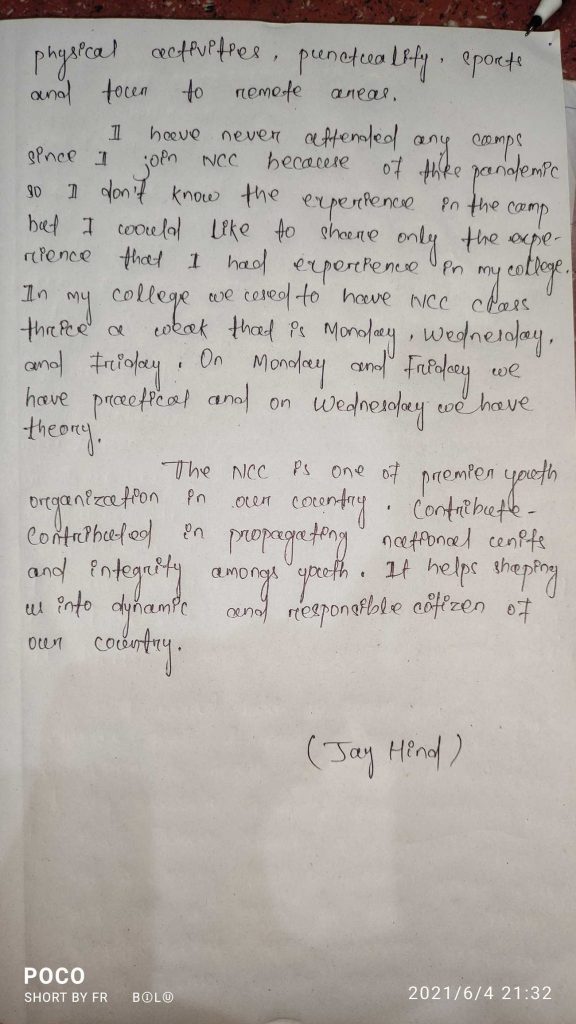 physical activities, punctuality, sports
and tour to remote areas.
I have never attended any camps
since I join NCC because of this pandemic
so I don't know the experience in the camp
but I would like to share only the expe-
rience that I had experience in my college.
In my college we used to have NCC class
thrice a weak that is Monday, Wednesday,
and Friday. On Monday and Friday we
have practical and on Wednesday we have
theory.
The NCC is one of premier youth
organization in our country. Contribute-
Contributed in propagating national units
and integrity amongs youth. It helps shaping
us into dynamic and responsible citizen of
our country.
(Jay Hind)
POCO
SHORT BY FR BILU
2021/6/4 21:32